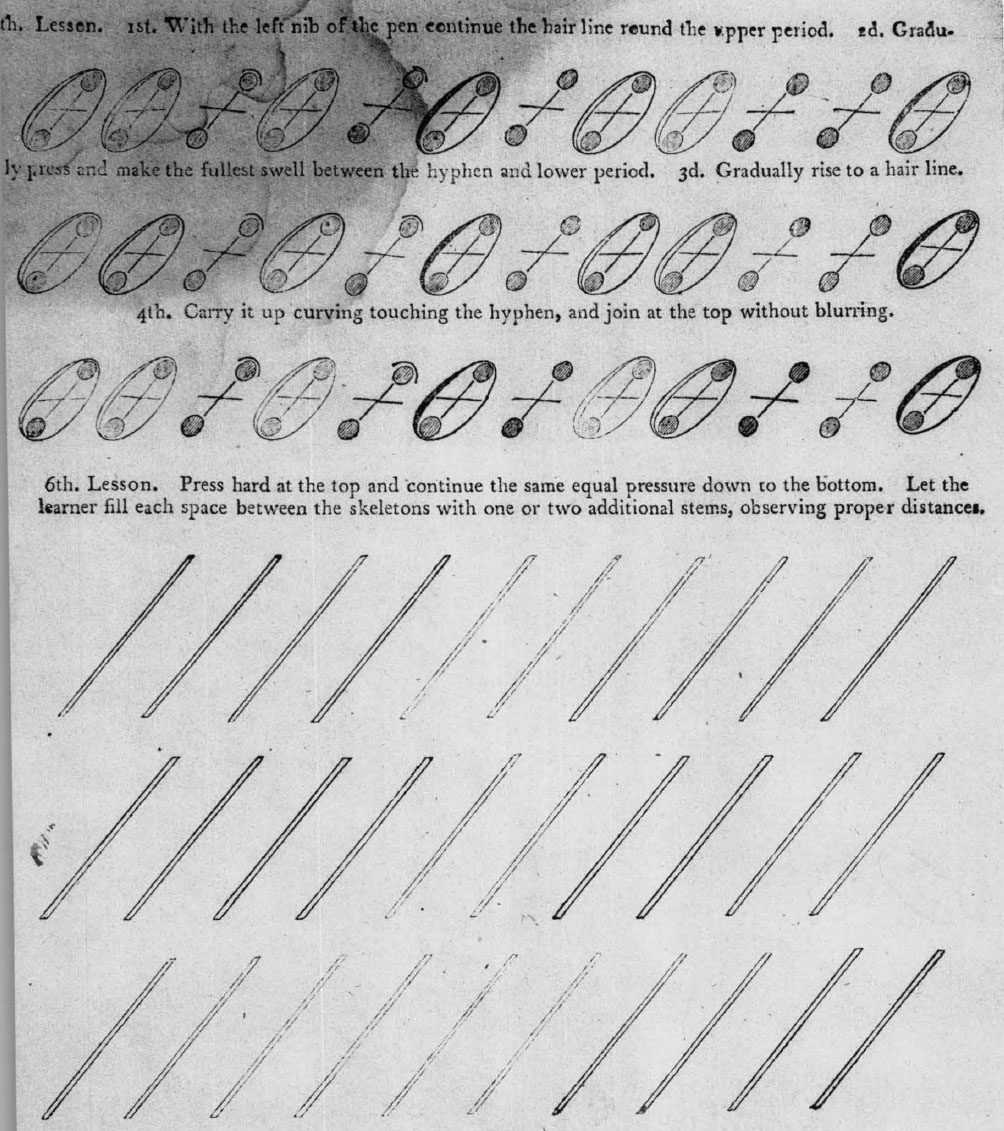 th. Lesson. 1st. With the left nib of the pen continue the hair line round the upper period. 2d. Gradu-
ly press and make the fullest swell between the hyphen and lower period. 3d. Gradually rise to a hair line.
4th. Carry it up curving touching the hyphen, and join at the top without blurring.
6th. Lesson. Press hard at the top and continue the same equal pressure down to the bottom. Let the
learner fill each space between the skeletons with one or two additional stems, observing proper distances.